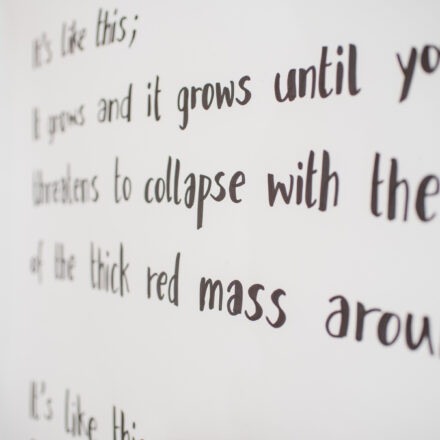 it's like this;
It grows and it grows until yo
threatens to collapse with the
of the thick red mass arou
It's like thi